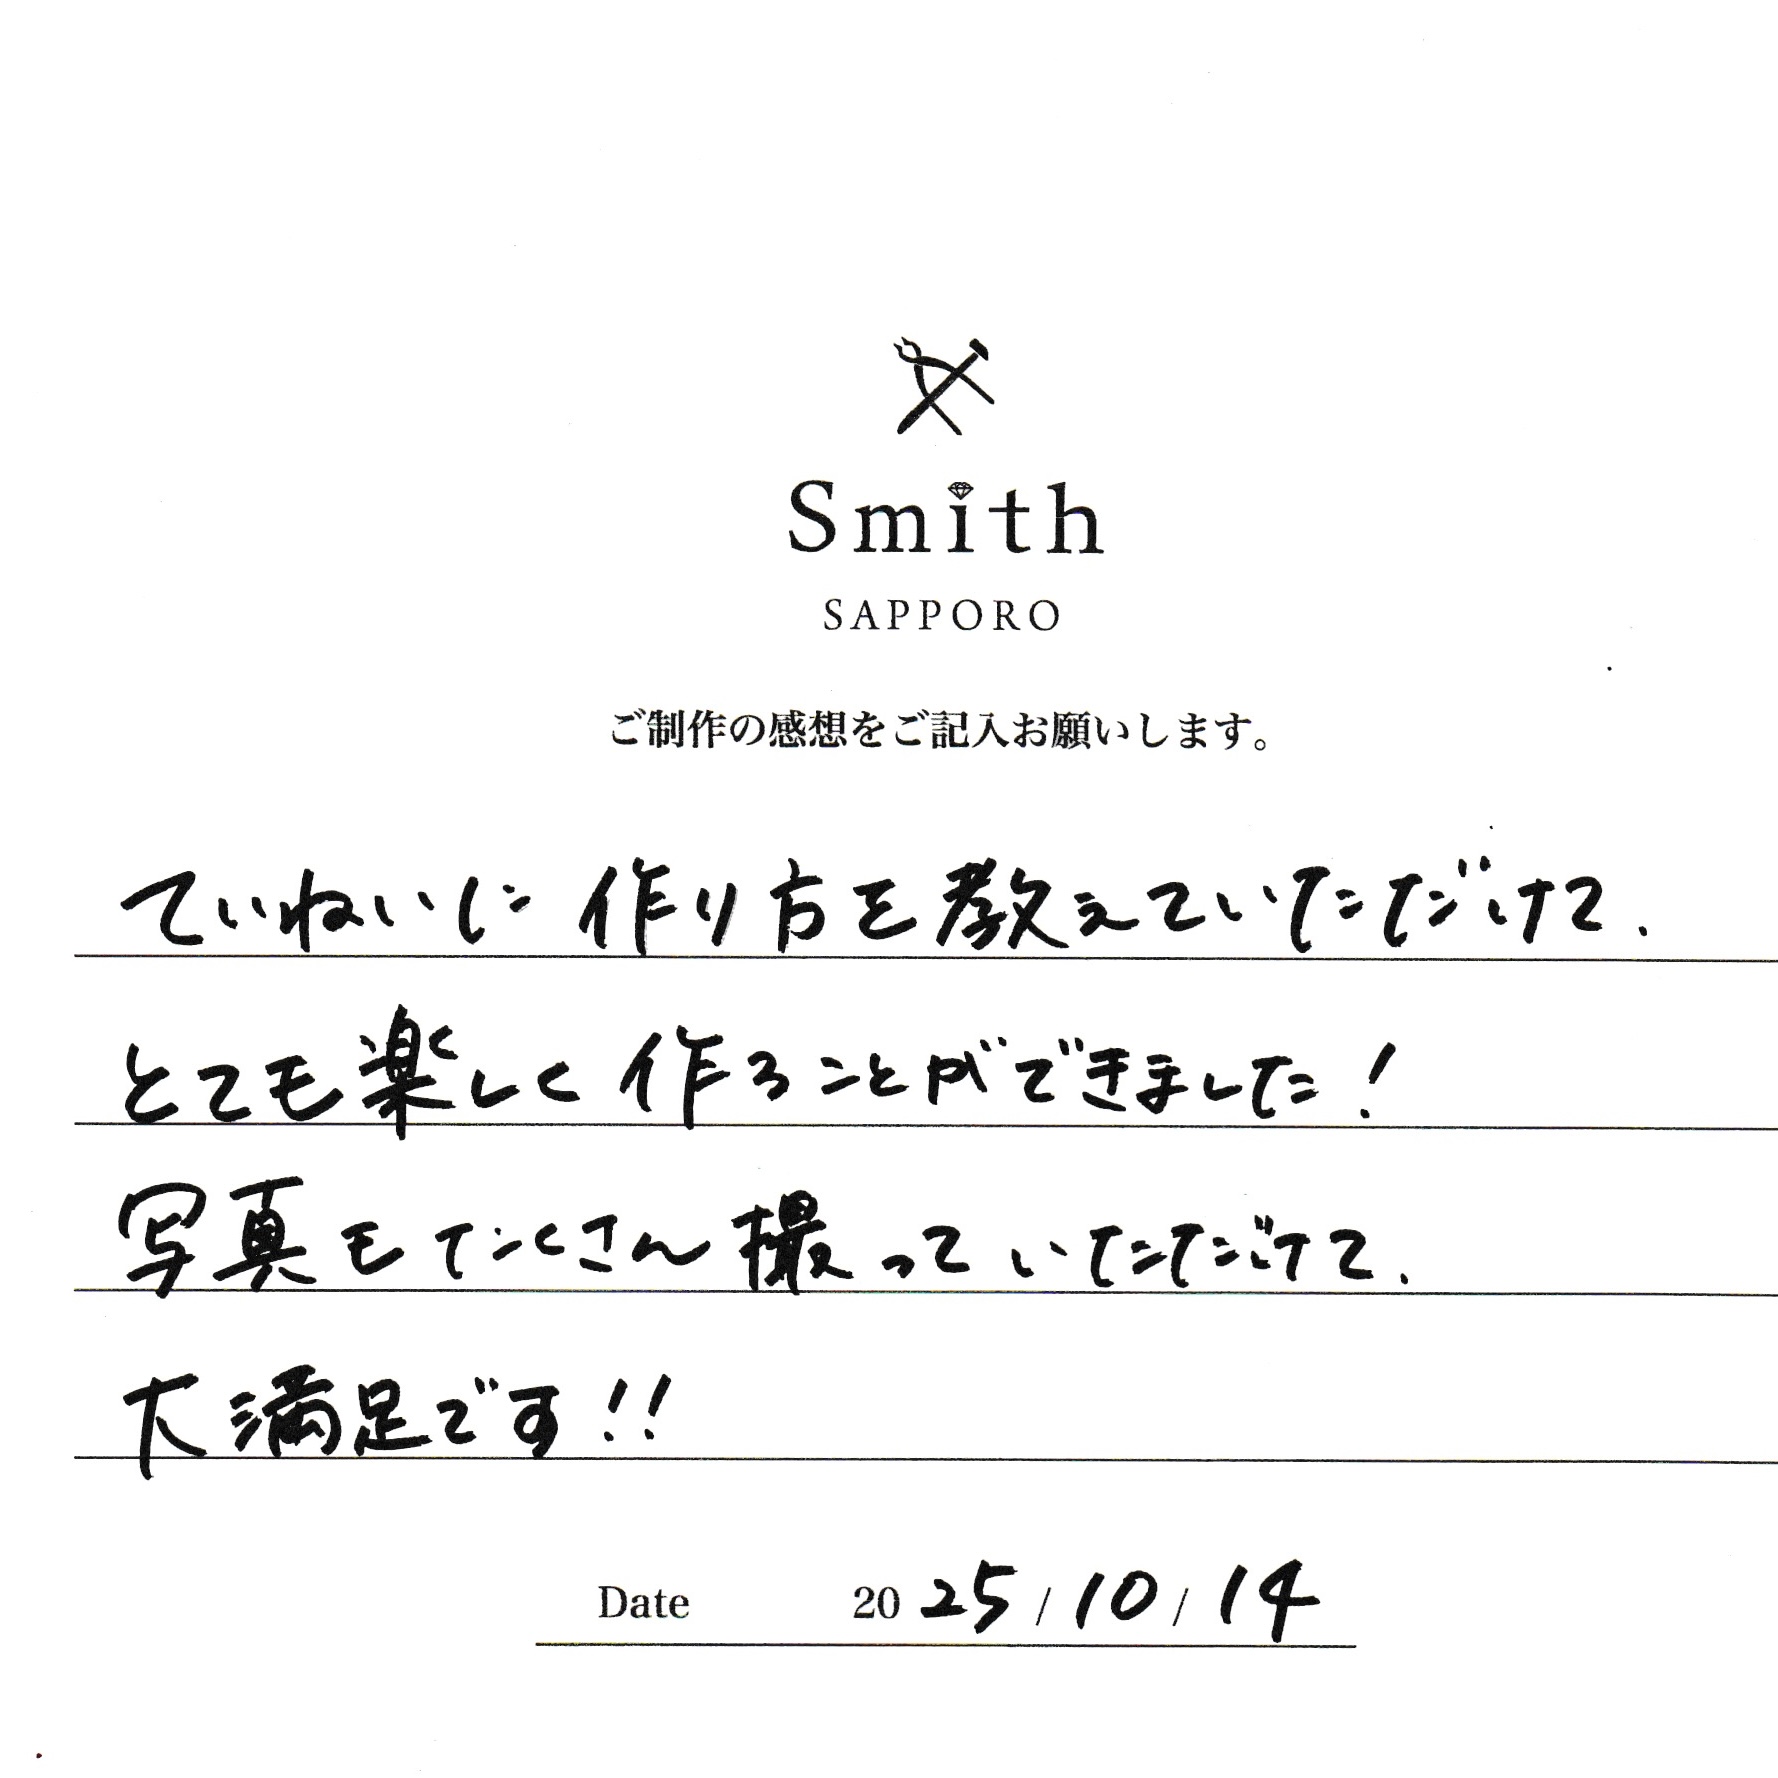 Smith
SAPPORO
ご制作の感想をご記入お願いします。
ていねいに 作り方を教えていただけて.
とても楽しく 作ることができました!
写真もたくさん 撮って いただけて.
大満足です!!
Date 2025/10/14